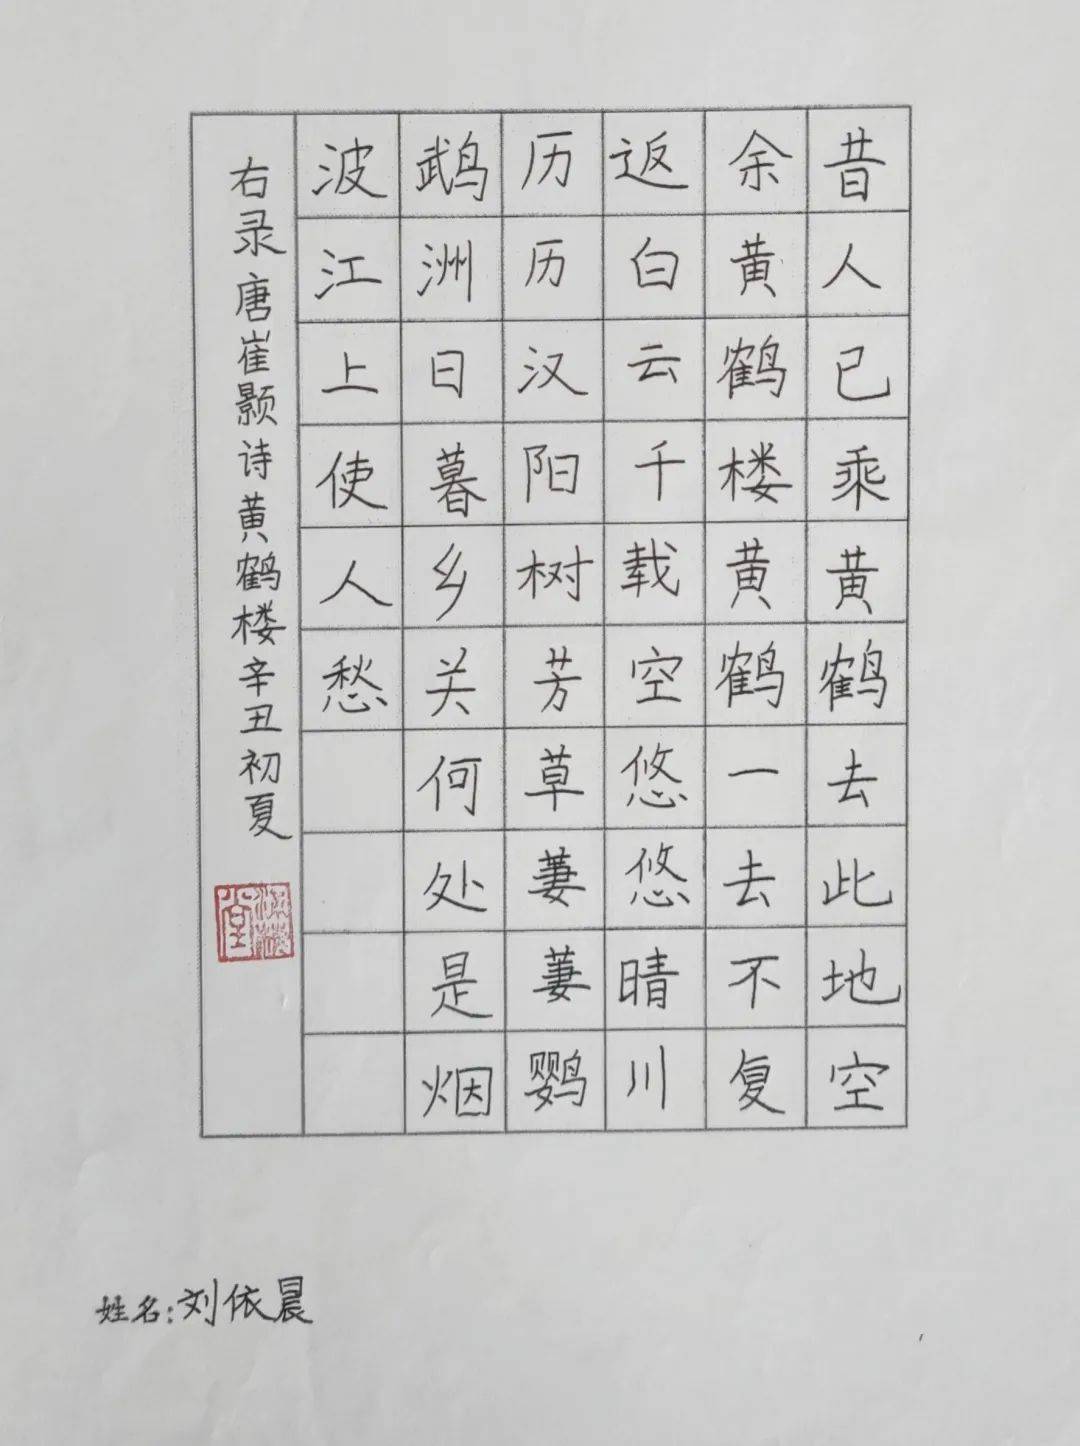 昔人已乘黄鹤去此地空
余黄鹤楼黄鹤一去不复
返白云千载空悠悠晴川
历历汉阳树芳草萋萋鹦
鹉洲日暮乡关何处是烟
波江上使人愁
右录唐崔颢诗黄鹤楼辛丑初夏
姓名:刘依晨